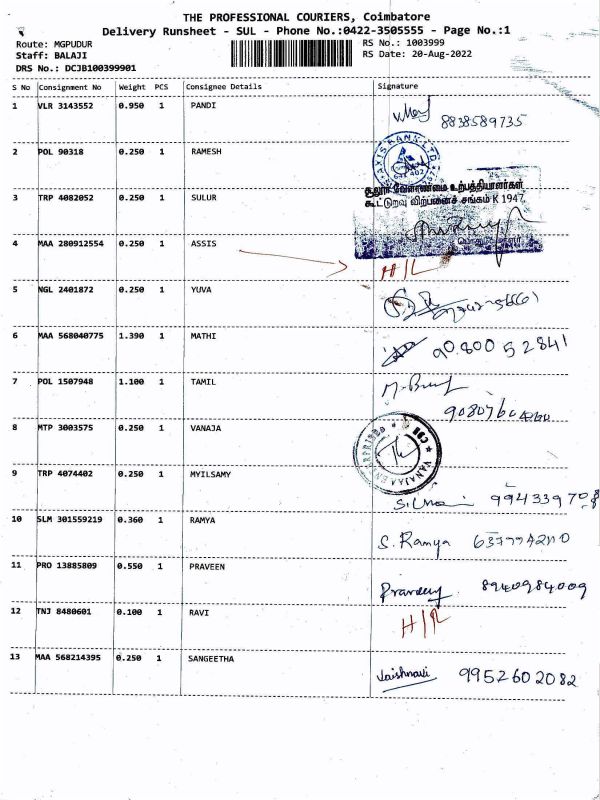 THE PROFESSIONAL COURIERS, Coimbatore
Delivery Runsheet - SUL - Phone No.:0422-3505555 - Page No.:1
Route: MGPUDUR
RS No.: 1003999
Staff: BALAJI
RS Date: 20-Aug-2022
DRS No.: DCJB100399901
S No Consignment No Weight PCS Consignee Details Signature
1 VLR 3143552 0.950 1 PANDI
8838589735
2 POL 90318 0.250 1 RAMESH
AXIS BANK LTD
3 TRP 4082052 0.250 1 SULUR
சூலூர் வேளாண்மை உற்பத்தியாளர்கள்
கூட்டுறவு விற்பனைச் சங்கம் K 1947
4 MAA 280912554 0.250 1 ASSIS
H/L
5 NGL 2401872 0.250 1 YUVA
6 MAA 568040775 1.390 1 MATHI
90800 52841
7 POL 1507948 1.100 1 TAMIL
8 MTP 3003575 0.250 1 VANAJA
VANAJAA ENTERPRISES
9 TRP 4074402 0.250 1 MYILSAMY
10 SLM 301559219 0.360 1 RAMYA
S. Ramya
11 PRO 13885809 0.550 1 PRAVEEN
Praveen 8940984009
12 TNJ 8480601 0.100 1 RAVI
13 MAA 568214395 0.250 1 SANGEETHA
Vaishnavi 9952602082